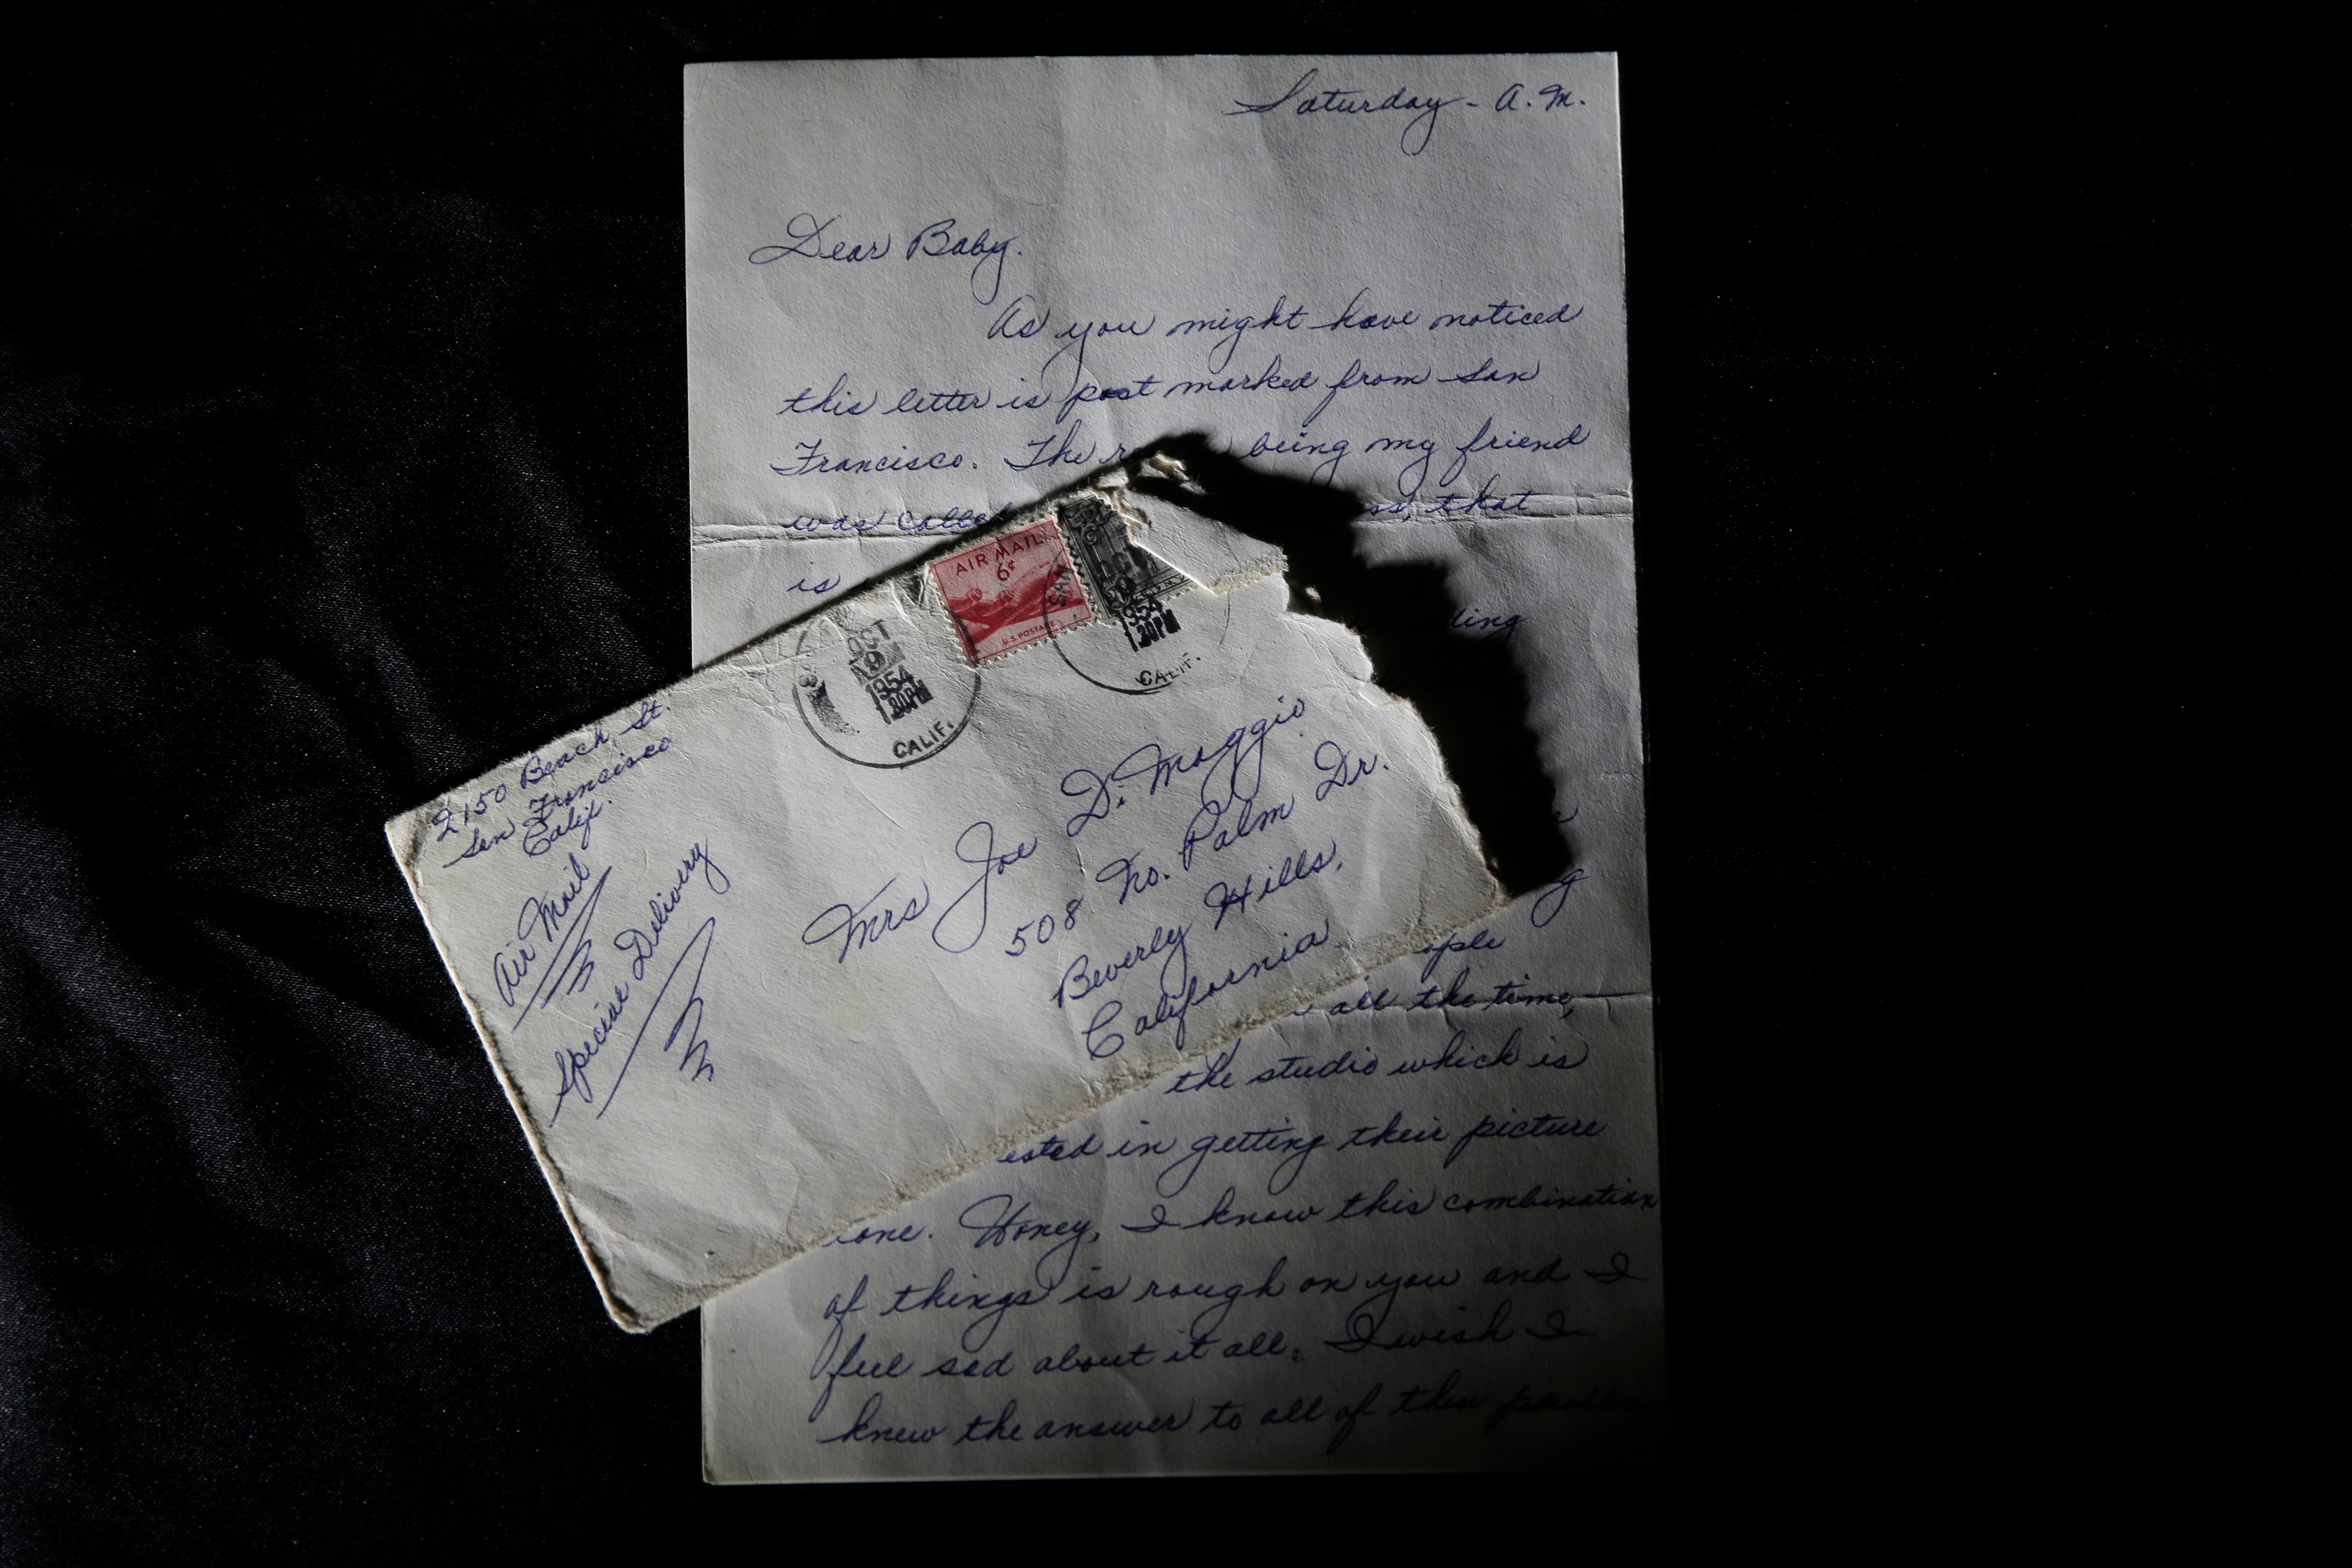 Saturday - A.M.
Dear Baby.
As you might have noticed
this letter is post marked from San
Francisco. The being my friend
was called that
is
all the time, —
the studio which is
in getting their picture
Honey, I know this combination
of things is rough on you and I
feel sad about it all. I wish I
knew the answer to all of
2150 Beach St.
San Francisco
Calif.
Air Mail
Special Delivery
AIR MAIL
6¢
U.S. POSTAGE
OCT
9
1954
CALIF.
SAN
9
1954
CALIF.
Mrs Joe Di Maggio
508 No. Palm Dr.
Beverly Hills,
California